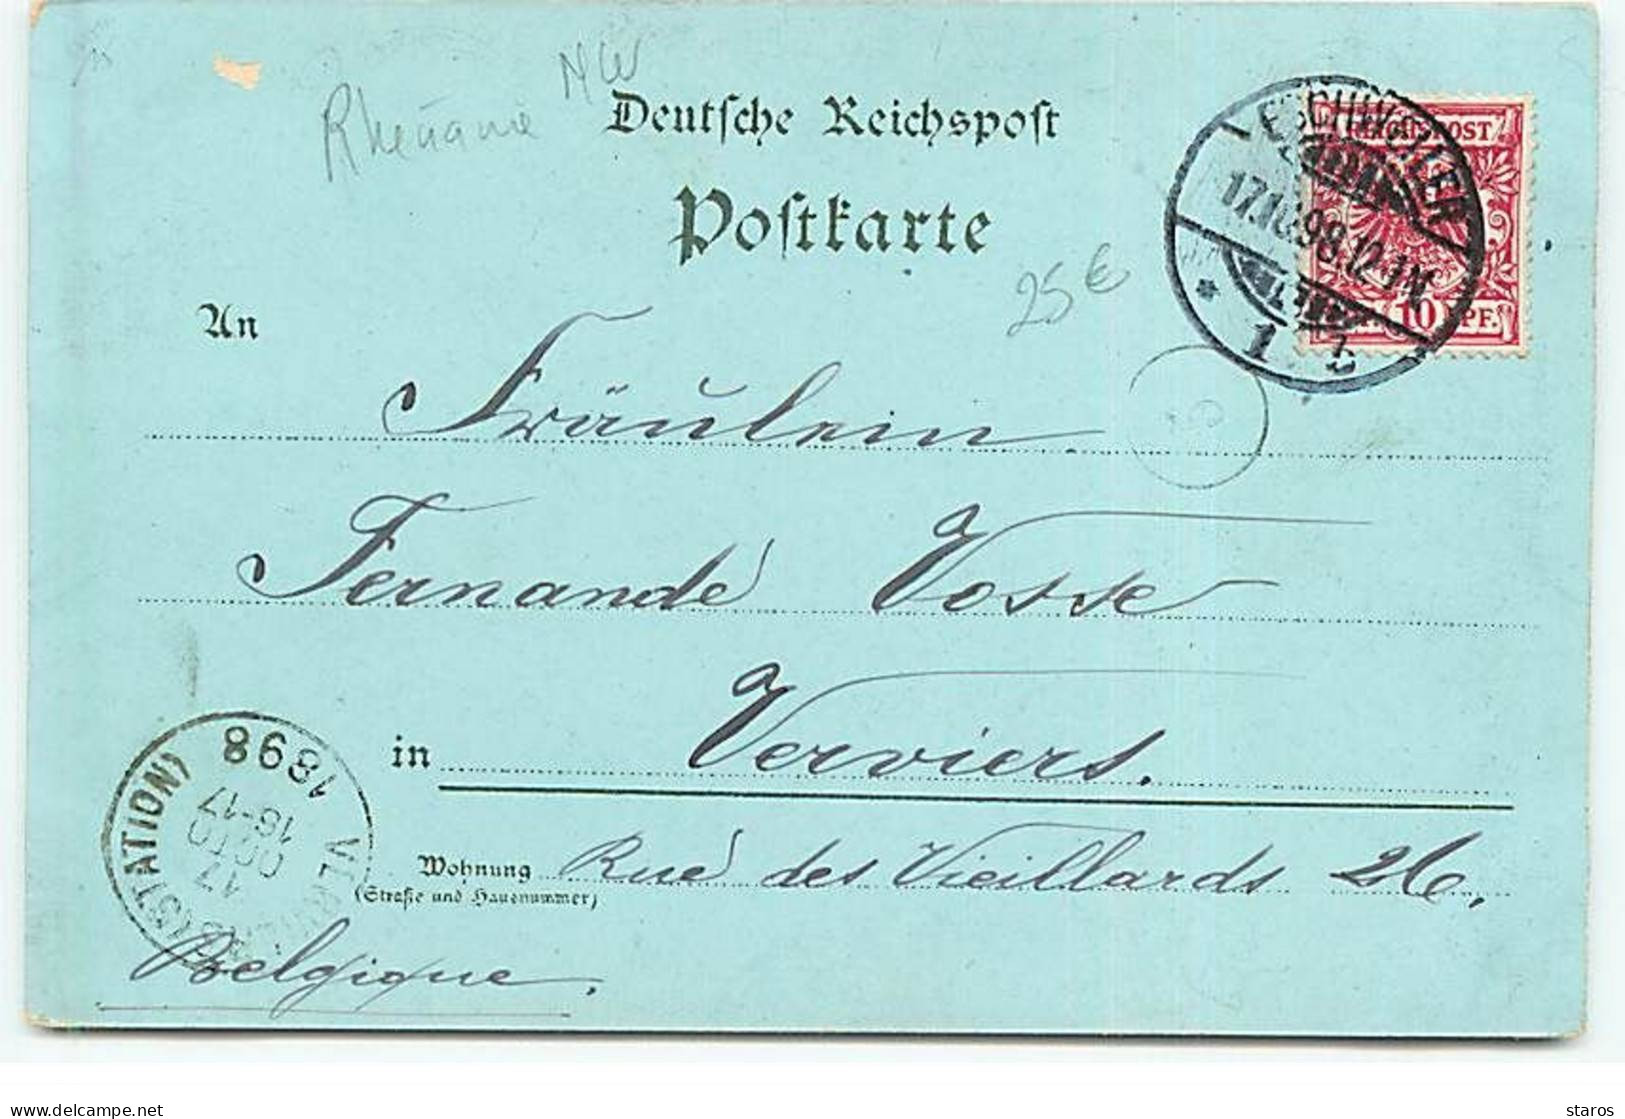 Rhénanie NW
Deutsche Reichspost
Postkarte
ESCHWEILER
17.10.98.12-1N.
* 1 b
REICHSPOST
10 PF.
25 €
An
Fräulein
Fernande Vosse
in Verviers.
Wohnung Rue des Vieillards 26.
(Straße und Hausnummer)
Belgique.
(STATION)
1898
17
OCTO
16-17
delcampe.net
staros